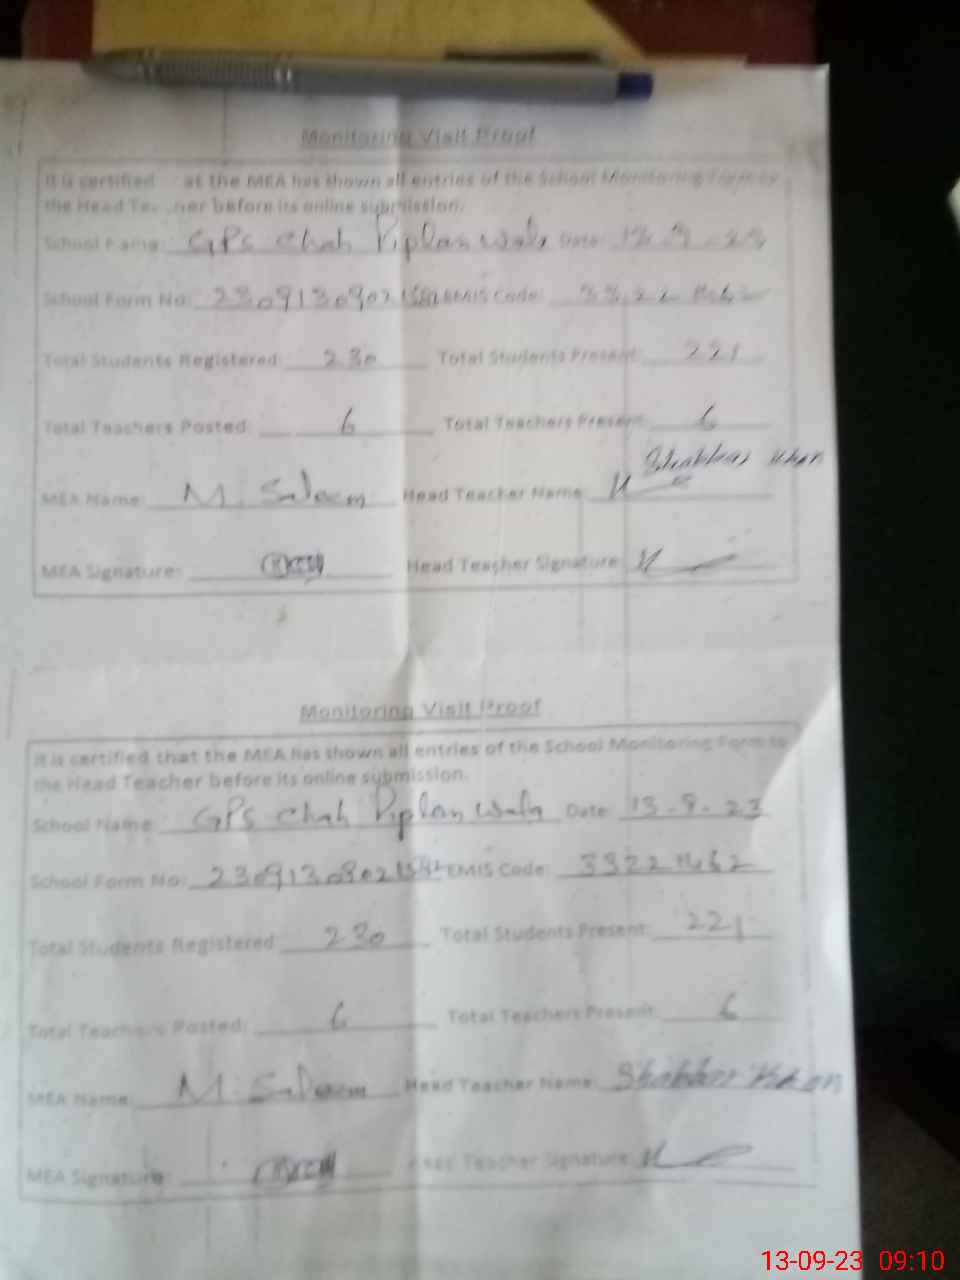 Monitoring Visit Proof
It is certified at the MEA has shown all entries of the School Monitoring Form to
the Head Te ner before its online submission.
School Name: GPS Chah Piplan Wala Date: 13.9.23
School Form No: 2309130902 EMIS Code:
Total Students Registered: 230 Total Students Present: 221
Total Teachers Posted: 6 Total Teachers Present: 6
Shabbar Khan
MEA Name: M. Saleem Head Teacher Name:
MEA Signature: Head Teacher Signature:
Monitoring Visit Proof
It is certified that the MEA has shown all entries of the School Monitoring Form to
the Head Teacher before its online submission.
School Name: GPS Chah Piplan Wala Date: 13.9.23
School Form No: 2309130902 EMIS Code:
Total Students Registered 230 Total Students Present: 221
Total Teachers Posted: 6 Total Teachers Present: 6
MEA Name: M. Saleem Head Teacher Name: Shabbar Khan
MEA Signature: Head Teacher Signature:
13-09-23 09:10